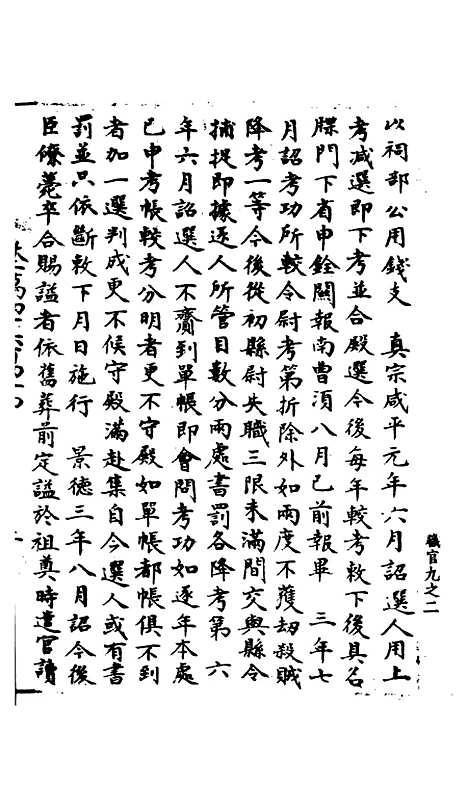 職官九之二
以祠部公用錢支　真宗咸平元年六月詔選人用上
考減選即下考並合殿選今後每年較考敕下後具名
牒門下省申銓闕報南曹須八月已前報畢　三年七
月詔考功所較令尉考第折除外如兩度不獲劫殺賊
降考一等令後從初縣尉失職三限未滿間交與縣令
捕捉即據逐人所管目數分兩處書罰各降考第　六
年六月詔選人不齎到單帳即會問考功如逐年本處
已申考帳較考分明者更不守殿如單帳都帳俱不到
者加一選判成更不候守殿滿赴集自今選人或有書
罰並只依斷敕下月日施行　景德三年八月詔今後
臣僚薨卒合賜謚者依舊葬前定謚於祖奠時遣官讀